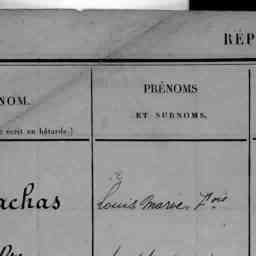 RÉP
NOM.
PRÉNOMS
écrit en bâtarde.)
ET SURNOMS.
achas
Louis Marie, Fois